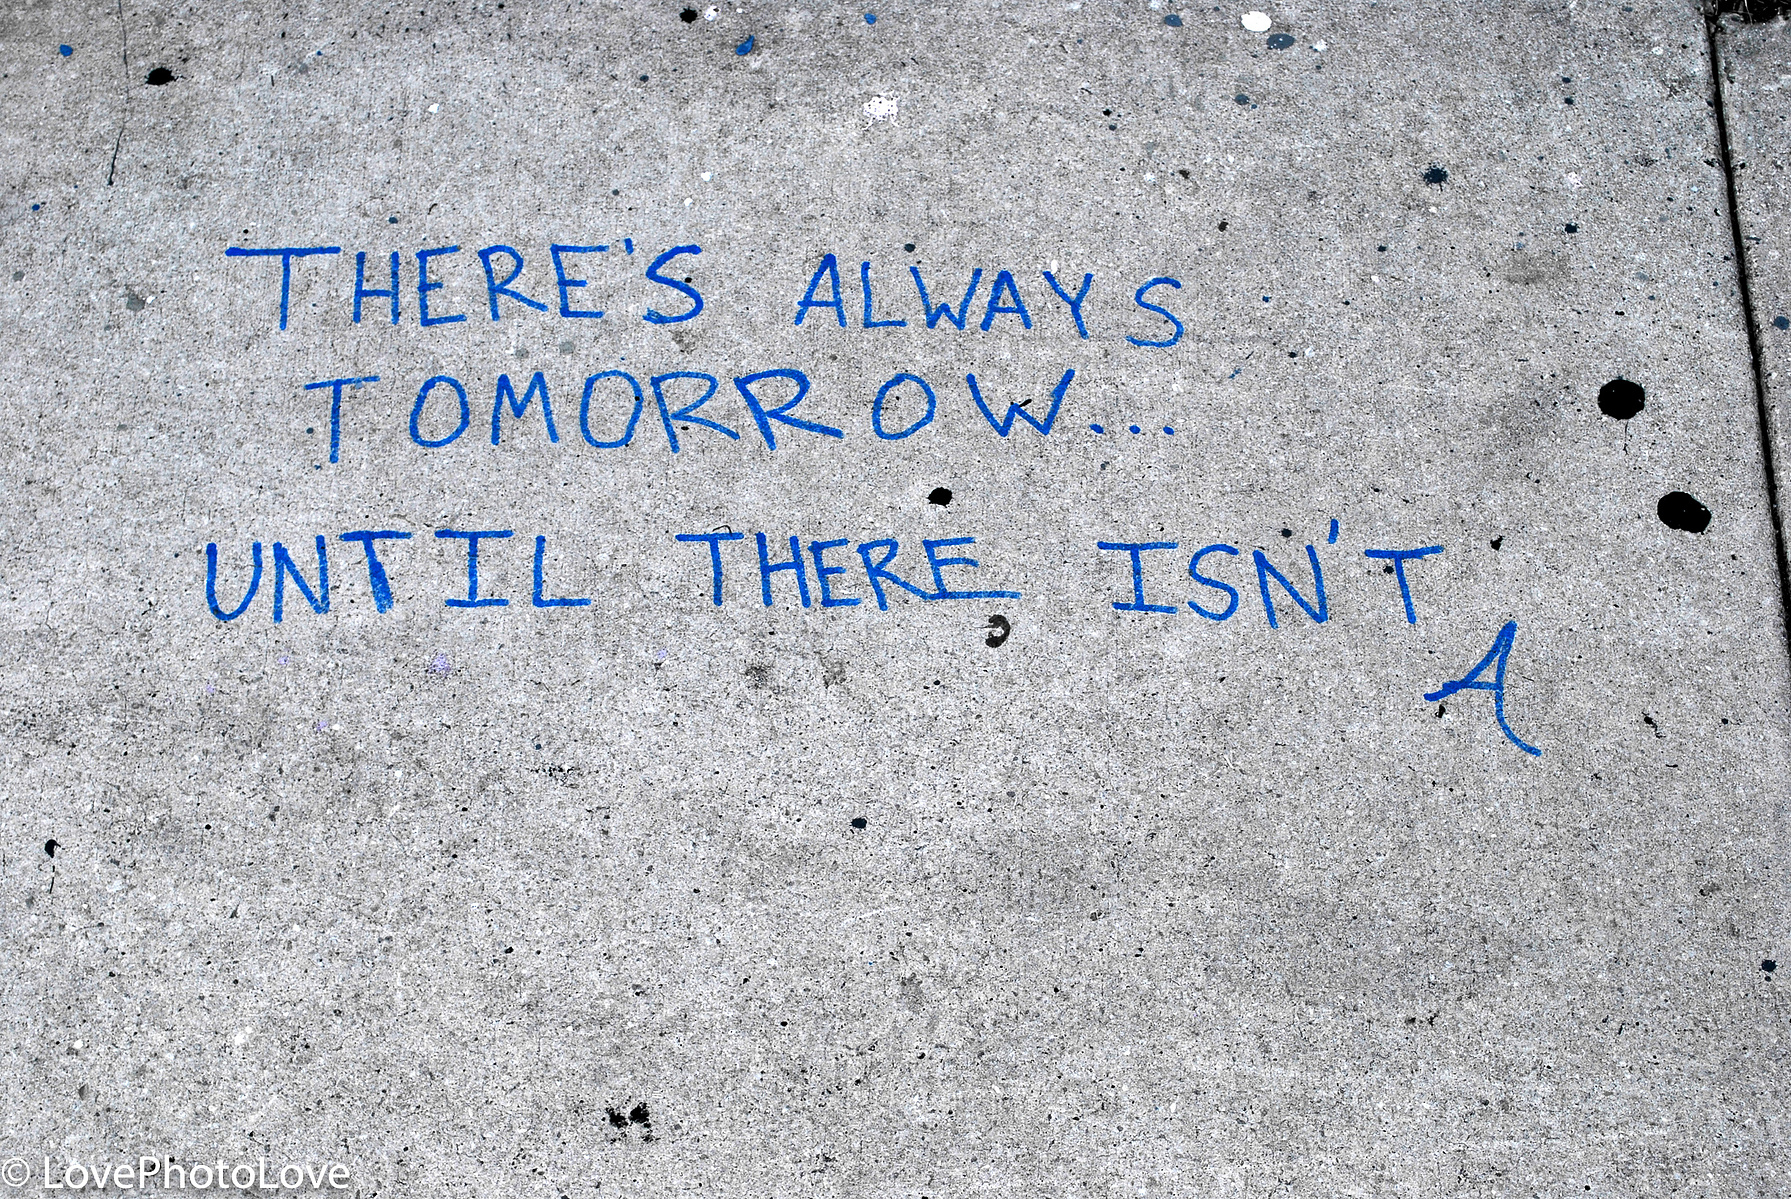 THERE'S ALWAYS
TOMORROW...
UNTIL THERE ISN'T
A
© LovePhotoLove